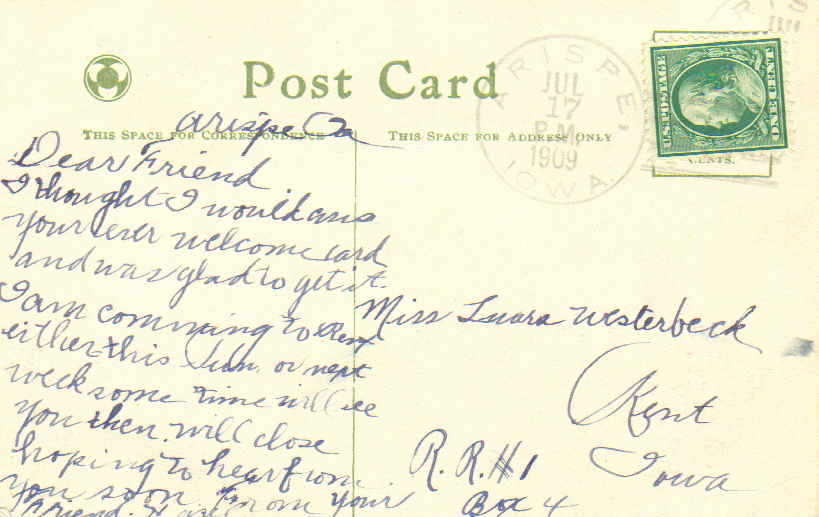 Post Card
THIS SPACE FOR CORRESPONDENCE
THIS SPACE FOR ADDRESS ONLY
ARISPE,
JUL
17
P.M.
1909
IOWA.
U.S. POSTAGE
ONE CENT
CENTS.
Arispe Ia
Dear Friend
I thought I would ans
your ever welcome card
and was glad to get it.
I am comming to Kent
either this Sun. or next
week some time will see
you then. will close
hoping to hear from
you soon. From your
Friend.
Miss Luara Westerbeck
Kent
Iowa
R. R. #1
Box 4